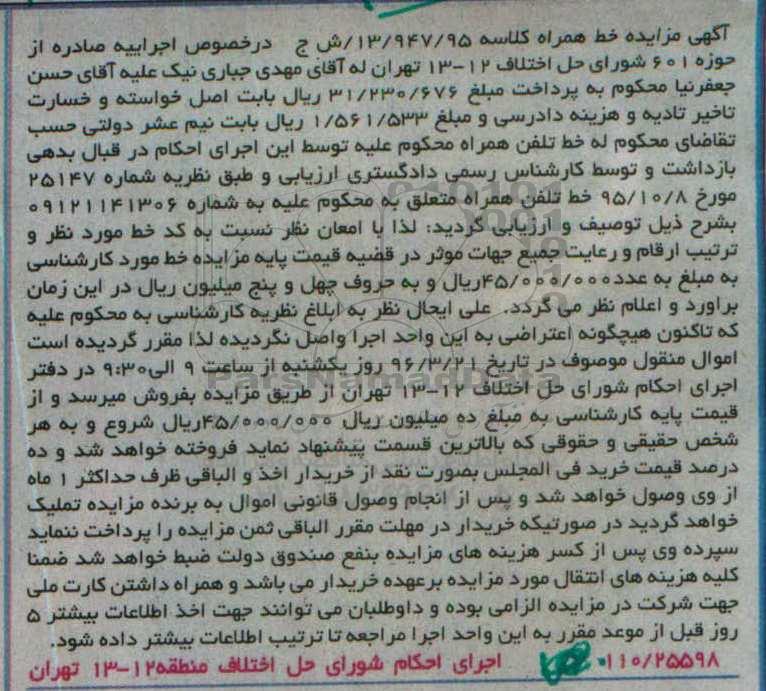 آگهی مزایده خط همراه کلاسه ۱۳/۹۴۷/۹۵/ش ج درخصوص اجراییه صادره از
حوزه ۶۰۱ شورای حل اختلاف ۱۲-۱۳ تهران له آقای مهدی جباری نیک علیه آقای حسن
جعفرنیا محکوم به پرداخت مبلغ ۳۱/۲۳۰/۶۷۶ ریال بابت اصل خواسته و خسارت
تاخیر تادیه و هزینه دادرسی و مبلغ ۱/۵۶۱/۵۳۳ ریال بابت نیم عشر دولتی حسب
تقاضای محکوم له خط تلفن همراه محکوم علیه توسط این اجرای احکام در قبال بدهی
بازداشت و توسط کارشناس رسمی دادگستری ارزیابی و طبق نظریه شماره ۲۵۱۴۷
مورخ ۹۵/۱۰/۸ خط تلفن همراه متعلق به محکوم علیه به شماره ۰۹۱۲۱۱۴۱۳۰۶
بشرح ذیل توصیف و ارزیابی گردید: لذا با امعان نظر نسبت به کد خط مورد نظر و
ترتیب ارقام و رعایت جمیع جهات موثر در قضیه قیمت پایه مزایده خط مورد کارشناسی
به مبلغ به عدد۴۵/۰۰۰/۰۰۰ریال و به حروف چهل و پنج میلیون ریال در این زمان
براورد و اعلام نظر می گردد. علی ایحال نظر به ابلاغ نظریه کارشناسی به محکوم علیه
که تاکنون هیچگونه اعتراضی به این واحد اجرا واصل نگردیده لذا مقرر گردیده است
اموال منقول موصوف در تاریخ ۹۶/۳/۲۱ روز یکشنبه از ساعت ۹ الی۹:۳۰ در دفتر
اجرای احکام شورای حل اختلاف ۱۲-۱۳ تهران از طریق مزایده بفروش میرسد و از
قیمت پایه کارشناسی به مبلغ ده میلیون ریال ۴۵/۰۰۰/۰۰۰ریال شروع و به هر
شخص حقیقی و حقوقی که بالاترین قسمت پیشنهاد نماید فروخته خواهد شد و ده
درصد قیمت خرید فی المجلس بصورت نقد از خریدار اخذ و الباقی ظرف حداکثر ۱ ماه
از وی وصول خواهد شد و پس از انجام وصول قانونی اموال به برنده مزایده تملیک
خواهد گردید در صورتیکه خریدار در مهلت مقرر الباقی ثمن مزایده را پرداخت ننماید
سپرده وی پس از کسر هزینه های مزایده بنفع صندوق دولت ضبط خواهد شد ضمنا
کلیه هزینه های انتقال مورد مزایده برعهده خریدار می باشد و همراه داشتن کارت ملی
جهت شرکت در مزایده الزامی بوده و داوطلبان می توانند جهت اخذ اطلاعات بیشتر ۵
روز قبل از موعد مقرر به این واحد اجرا مراجعه تا ترتیب اطلاعات بیشتر داده شود.
۱۱۰/۲۵۵۹۸ اجرای احکام شورای حل اختلاف منطقه۱۲-۱۳ تهران
ParsNamadData